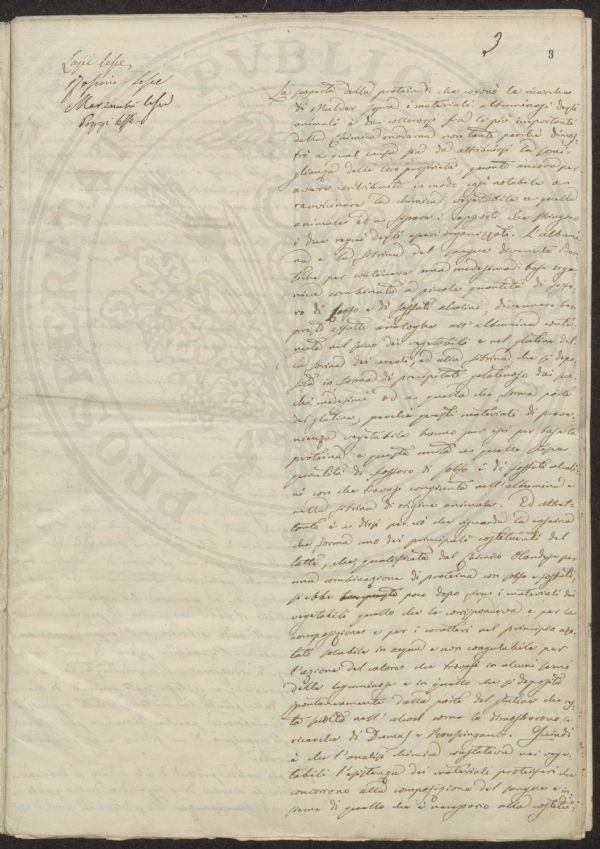 3
3
Lessi
La scoperta della proteina di che venne la ricerche
di Mulder sopra i materiali albuminosi degli
animali è da collocarsi fra le più importanti
della Chimica moderna non tanto perchè dimo-
strò a qual causa sia da attribuirsi la somi-
glianza delle loro proprietà, quanto ancora per
avere contribuito in modo così notabile a
ravvicinare la chimica vegetabile a quella
animale ed a scoprire i rapporti che stringono
i due regni degli esseri organizzati. L'albumi-
na e la fibrina del sangue divenute iden-
tiche per contenere una medesima base orga-
nica combinata a piccole quantità di fosfo-
ro di solfo e di fosfati alcalini, divennero ben
presto affatto analoghe all'albumina conte-
nuta nel succo dei vegetabili e nel glutine del-
la farina dei cereali, ed alla fibrina che si depo-
sita in forma di precipitato gelatinoso dai suc-
chi medesimi ed a quella che forma parte
del glutine, perchè questi materiali di prove-
nienza vegetabile hanno pur essi per base la
proteina e questa unita a quelle stesse
quantità di fosforo di solfo e di fosfati alcali-
ni con che trovasi congiunta nell'albumina e
nella fibrina di origine animale. Ed altret-
tanto è a dirsi per ciò che riguarda la caseina
che forma uno dei principali costituenti del
latte, che qualificata dal Chimico Olandese per
una combinazione di proteina con solfo e fosfati,
si ebbe poco dopo fra i materiali dei
vegetabili quello che le corrispondeva e per la
composizione e per i caratteri nel principio azo-
tato solubile in acqua e non coagulabile per
l'azione del calore che trovasi in alcuni semi
delle leguminose e in quello che si deposita
spontaneamente dalla parte del glutine che re-
sta sciolta nell'alcool come lo dimostrarono le
ricerche di Dumas e Boussingault. Quindi
è che l'analisi chimica constatava nei vege-
tabili l'esistenza dei materiali proteici che
concorrono alla composizione del sangue e in-
sieme di quello che è necessario alla costitu-